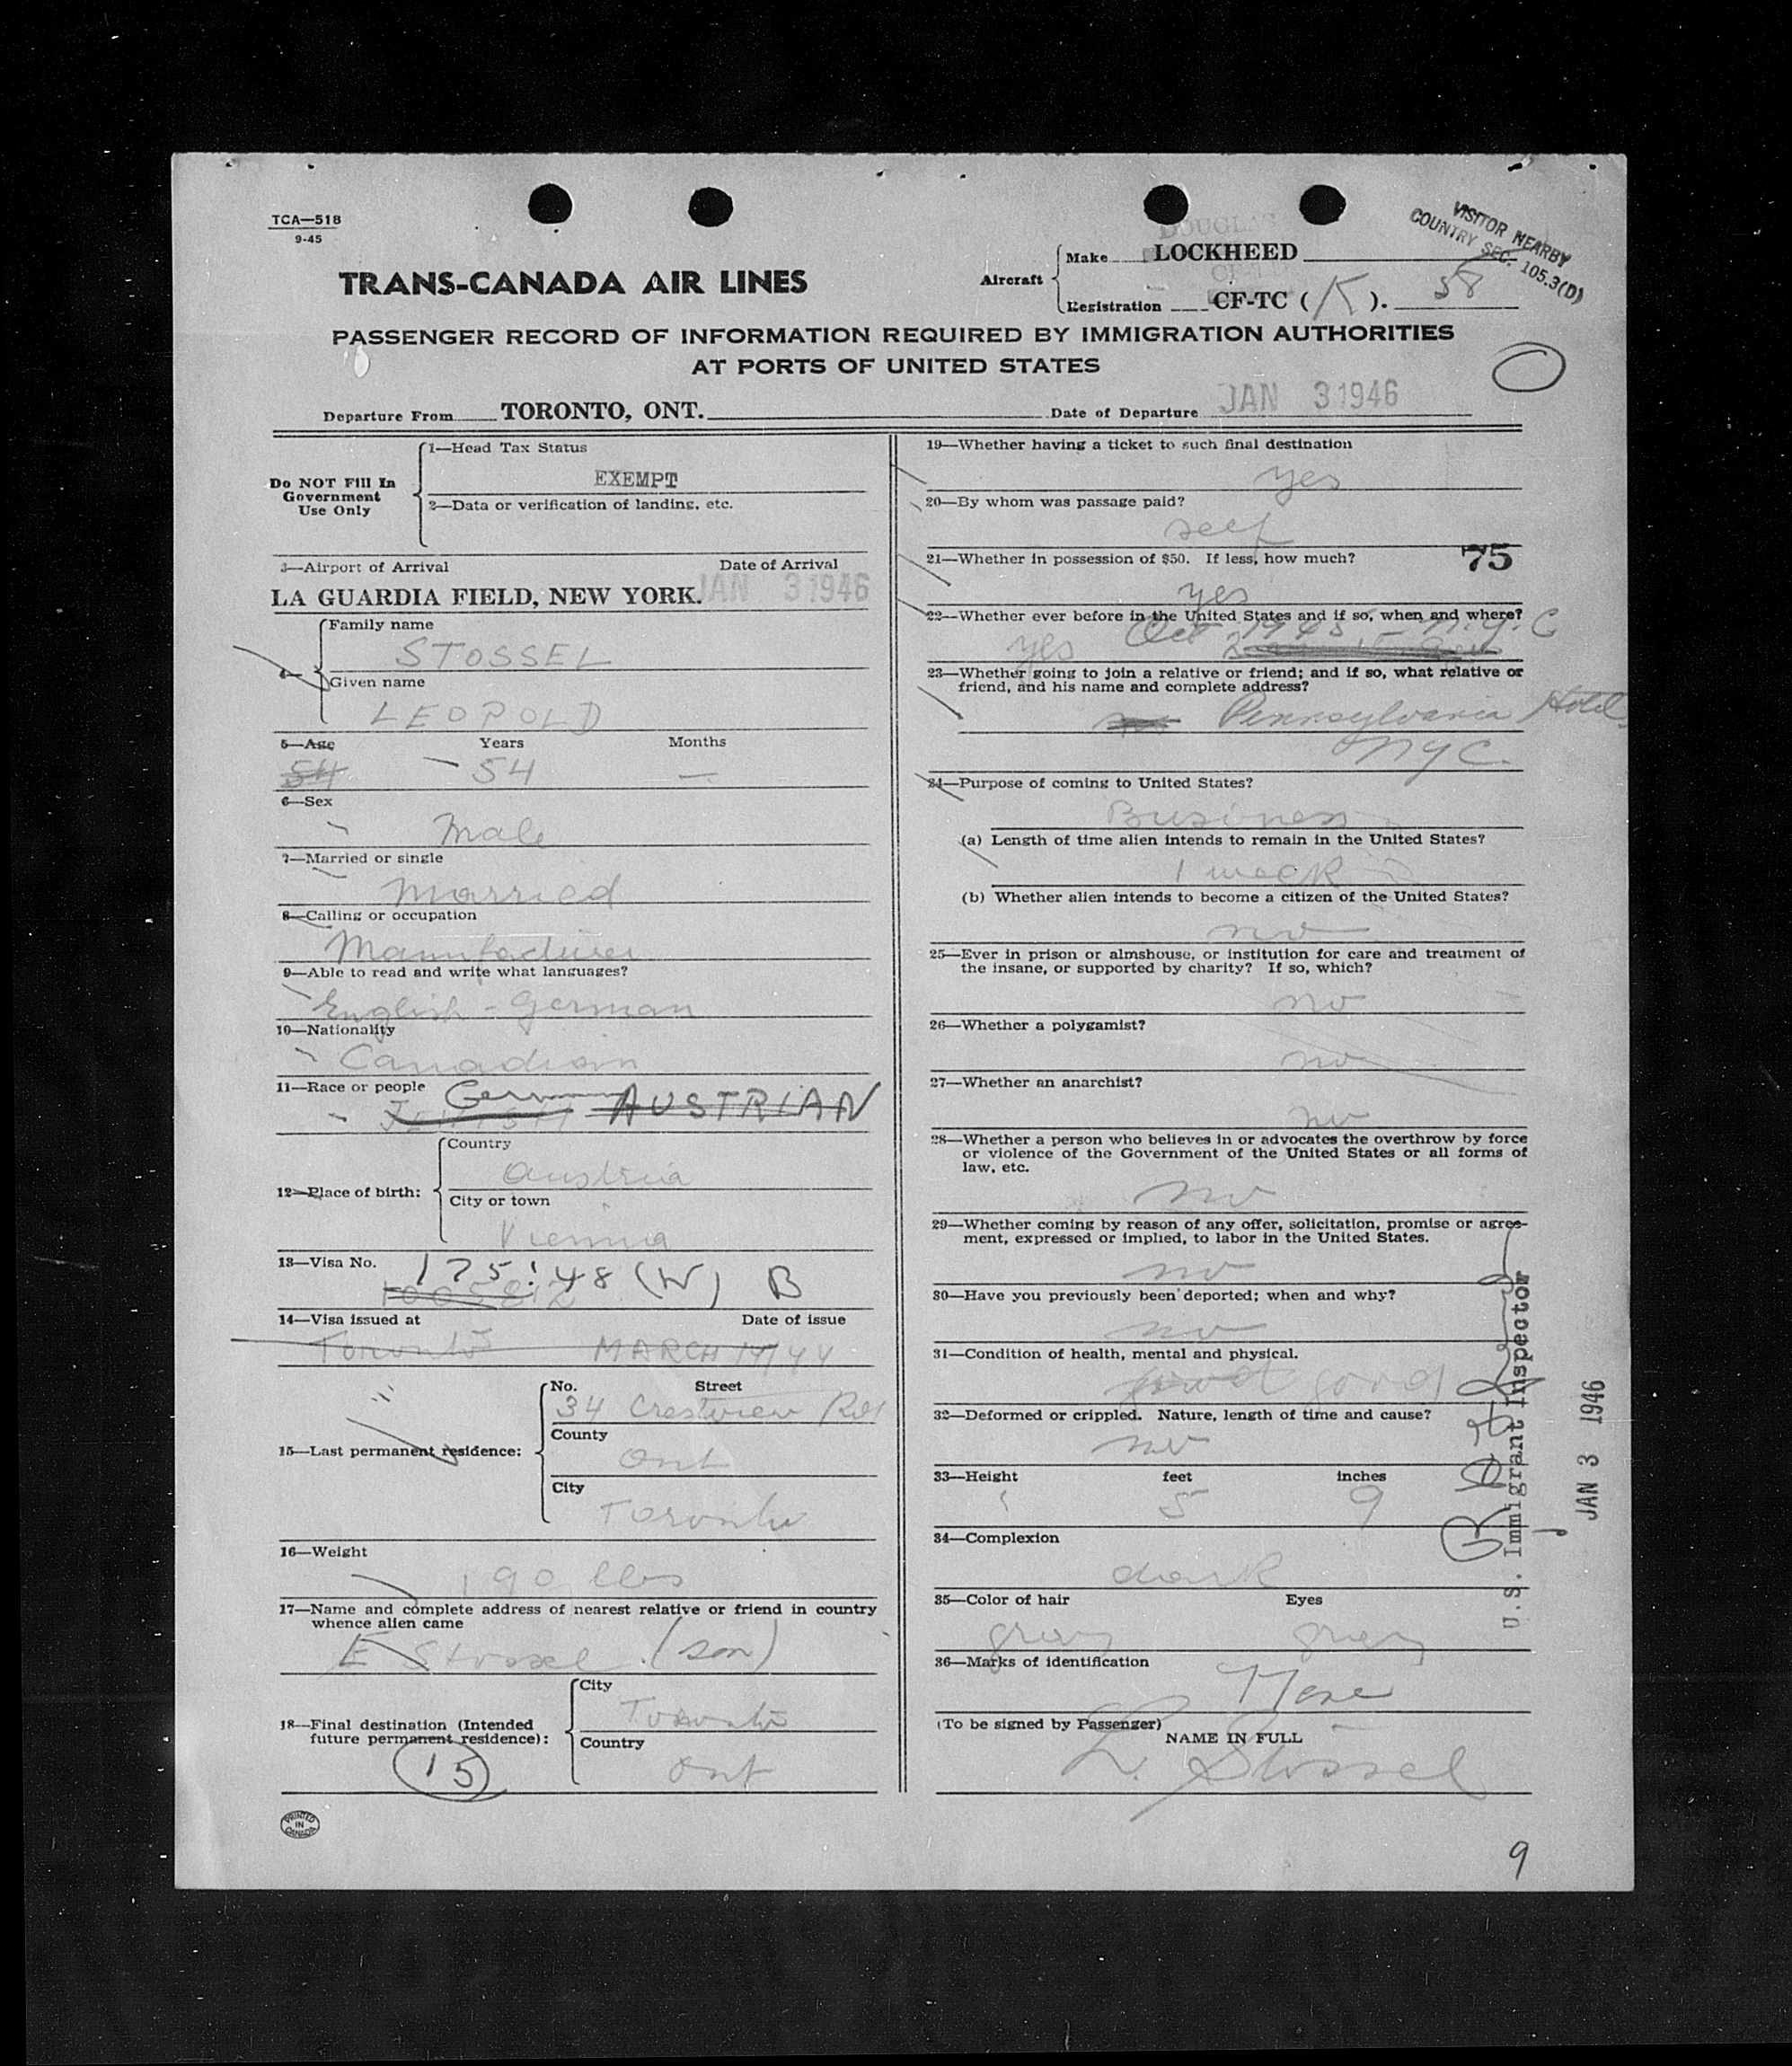 TCA—518
9-45
VISITOR NEARBY
COUNTRY SEC. 105.3(D)
TRANS-CANADA AIR LINES
DOUGLAS
Aircraft
Make LOCKHEED
Registration CF-TC ( K ). 58
PASSENGER RECORD OF INFORMATION REQUIRED BY IMMIGRATION AUTHORITIES
AT PORTS OF UNITED STATES
Departure From TORONTO, ONT. Date of Departure JAN 3 1946
Do NOT Fill In
Government
Use Only
1—Head Tax Status
EXEMPT
2—Data or verification of landing, etc.
3—Airport of Arrival Date of Arrival
LA GUARDIA FIELD, NEW YORK. JAN 3 1946
4—
Family name
STOSSEL
Given name
LEOPOLD
5—Age Years Months
54 54 —
6—Sex
Male
7—Married or single
Married
8—Calling or occupation
Manufacturer
9—Able to read and write what languages?
English - German
10—Nationality
Canadian
11—Race or people
German
JEWISH AUSTRIAN
12—Place of birth:
Country
Austria
City or town
Vienna
13—Visa No.
175!48 (W) B
14—Visa issued at Date of issue
Toronto MARCH 14/44
15—Last permanent residence:
No. Street
34 Crestview Rd
County
Ont
City
Toronto
16—Weight
190 lbs
17—Name and complete address of nearest relative or friend in country
whence alien came
E Stossel (son)
18—Final destination (Intended
future permanent residence):
City
Toronto
Country
Ont
15
PRINTED
IN
CANADA
19—Whether having a ticket to such final destination
yes
20—By whom was passage paid?
self
21—Whether in possession of $50. If less, how much? 75
yes
22—Whether ever before in the United States and if so, when and where?
yes Oct 1945 - N.Y.C
23—Whether going to join a relative or friend; and if so, what relative or
friend, and his name and complete address?
Pennsylvania Hotel
NYC.
24—Purpose of coming to United States?
Business
(a) Length of time alien intends to remain in the United States?
1 week
(b) Whether alien intends to become a citizen of the United States?
no
25—Ever in prison or almshouse, or institution for care and treatment of
the insane, or supported by charity? If so, which?
no
26—Whether a polygamist?
no
27—Whether an anarchist?
no
28—Whether a person who believes in or advocates the overthrow by force
or violence of the Government of the United States or all forms of
law, etc.
no
29—Whether coming by reason of any offer, solicitation, promise or agree-
ment, expressed or implied, to labor in the United States.
no
30—Have you previously been deported; when and why?
no
31—Condition of health, mental and physical.
good good
32—Deformed or crippled. Nature, length of time and cause?
no
33—Height feet inches
5 9
34—Complexion
dark
35—Color of hair Eyes
gray gray
36—Marks of identification
None
(To be signed by Passenger)
NAME IN FULL
L. Stossel
U.S. Immigrant Inspector
JAN 3 1946
9